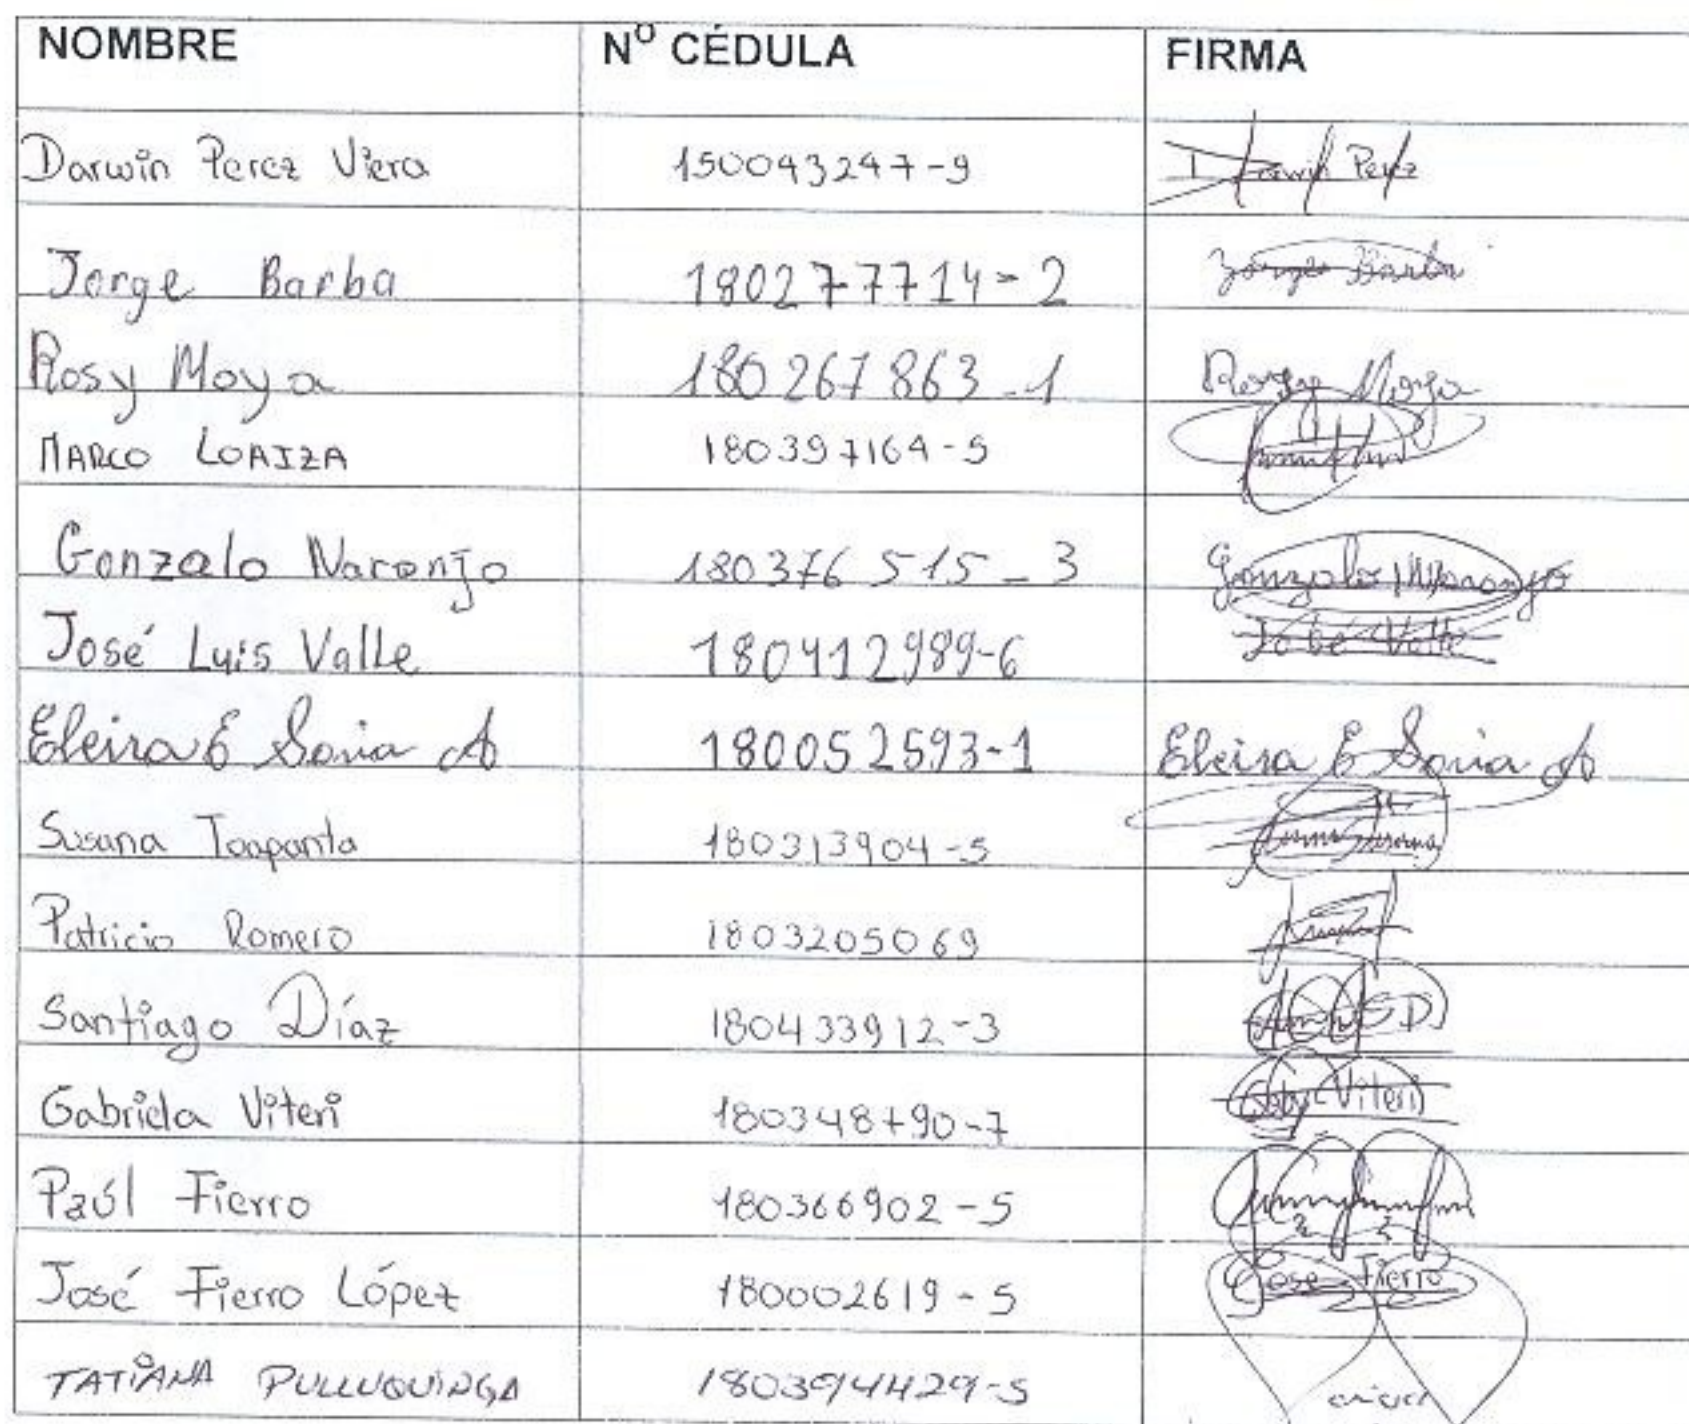 NOMBRE Nº CÉDULA FIRMA
Darwin Perez Viera 150043247-9 Darwin Perez
Jorge Barba 180277714-2 Jorge Barba
Rosy Moya 180267863-1 Rosy Moya
MARCO LOAIZA 180397164-5
Gonzalo Naranjo 180376515-3 Gonzalo Naranjo
José Luis Valle 180412989-6 José Valle
Eleira E Soria A 180052593-1 Eleira E Soria A
Susana Toapanta 180313904-5
Patricio Romero 1803205069
Santiago Díaz 180433912-3
Gabriela Viteri 180348790-7 Gaby Viteri
Paúl Fierro 180366902-5
José Fierro López 180002619-5 Jose Fierro
TATIANA PULLUQUINGA 180394429-5